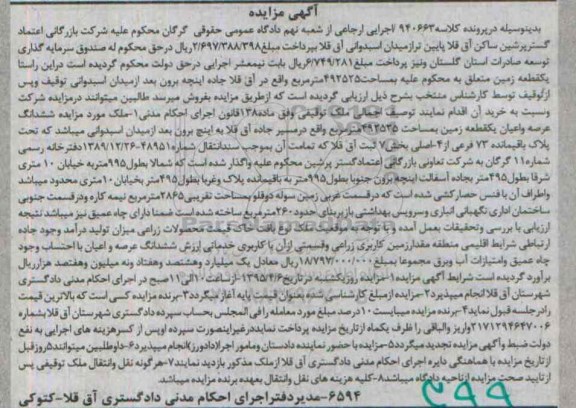 آگهی مزایده
بدینوسیله در پرونده کلاسه ۹۴۰۶۶۳ /اجرایی ارجاعی از شعبه نهم دادگاه عمومی حقوقی گرگان محکوم علیه شرکت بازرگانی اعتماد
گستر پرشین ساکن آق قلا پایین تر از میدان اسبدوانی آق قلا بپرداخت مبلغ ۲/۶۹۷/۳۸۸/۳۹۸ ریال در حق محکوم له صندوق سرمایه گذاری
توسعه صادرات استان گلستان ونیز پرداخت مبلغ ۶/۷۴۹/۲۸۱ ریال بابت نیمعشر اجرایی در حق دولت محکوم گردیده است در این راستا
یکقطعه زمین متعلق به محکوم علیه به مساحت ۴۹۲۵۲۵ مترمربع واقع در آق قلا جاده اینچه برون بعد از میدان اسبدوانی توقیف وپس
از توقیف توسط کارشناس منتخب بشرح ذیل ارزیابی گردیده است که از طریق مزایده بفروش میرسد طالبین میتوانند در مزایده شرکت
ونسبت به خرید آن اقدام نمایند توصیف اجمالی ملک توقیفی وفق ماده ۱۳۸ قانون اجرای احکام مدنی ۱-ملک مورد مزایده ششدانگ
عرصه واعیان یکقطعه زمین بمساحت ۴۹۲۵۲۵ مترمربع واقع در مسیر جاده آق قلا به اینچ برون بعد از میدان اسبدوانی میباشد که تحت
پلاک باقیمانده ۷۳ فرعی از ۴-اصلی بخش ۷ ثبت آق قلا که تمامت آن بموجب سند انتقال شماره ۴۸۹۵۱-۱۳۸۹/۱۲/۲۶ دفترخانه رسمی
شماره ۱۱ گرگان به شرکت تعاونی بازرگانی اعتماد گستر پرشین محکوم علیه واگذار شده است که شمالا بطول ۹۹۵ متر به خیابان ۱۰ متری
شرقا بطول ۴۹۵ متر بجاده آسفالت اینچه برون جنوبا بطول ۹۹۵ متر به باقیمانده پلاک وغربا بطول ۴۹۵ متر بخیابان ۱۰ متری محدود میباشد
واطراف آن با فنس حصار کشی شده است که در قسمت غربی زمین سوله دوقلو بمساحت تقریبی ۲۸۶۵ مترمربع نیمه کاره ودر قسمت جنوبی
ساختمان اداری نگهبانی انباری وسرویس بهداشتی باز بربنای حدود ۲۶۰ مترمربع ساخته شده است ضمنا دارای چاه عمیق نیز میباشد نتیجه
ارزیابی با بررسی وتحقیقات بعمل آمده وبا توجه به موقعیت ملک نوع بافت خاک تیپ محصولات زراعی میزان تولید درآمد وجود جاده
ارتباطی شرایط اقلیمی منطقه مقدار زمین کاربری زراعی وقسمتی از آن با کاربری خدماتی ارزش ششدانگ عرصه و اعیان با احتساب وجود
چاه عمیق وامتیازات آب وبرق مجموعا بمبلغ ۱۸/۷۹۷/۰۰۰/۰۰۰ ریال معادل یک میلیارد وهشتصد وهفتاد ونه میلیون وهفتصد هزار ریال
برآورد گردیده است شرایط آگهی مزایده ۱-مزایده روز یکشنبه در تاریخ ۱۳۹۵/۴/۶ از ساعت ۱۰ الی ۱۱ صبح در اجرای احکام مدنی دادگستری
شهرستان آق قلا انجام میپذیرد ۲-مزایده از مبلغ کارشناسی شده بعنوان قیمت پایه آغاز میگردد ۳-برنده مزایده کسی است که بالاترین قیمت
را در جلسه قبول نماید ۴-برنده مزایده میبایست ۱۰ درصد مبلغ مورد معامله را فی المجلس بحساب سپرده دادگستری شهرستان آق قلا بشماره
۲۱۷۱۲۹۴۶۴۷۰۰۶ واریز والباقی را ظرف یکماه از تاریخ مزایده پرداخت نماید در غیر اینصورت سپرده او پس از کسر هزینه های اجرایی به نفع
دولت ضبط وآگهی مزایده تجدید میگردد ۵-مزایده با حضور نماینده دادستان ومامور اجرا (دادورز) انجام میپذیرد ۶-داوطلبین میتوانند ۵ روز قبل
از تاریخ مزایده با هماهنگی دایره اجرای احکام مدنی دادگستری آق قلا از ملک مذکور بازدید نمایند ۷-هر گونه نقل وانتقال ملک توقیفی پس
از تایید صحت مزایده از ناحیه دادگاه میباشد ۸-کلیه هزینه های نقل وانتقال بعهده برنده مزایده میباشد.
۶۵۹۴-مدیر دفتر اجرای احکام مدنی دادگستری آق قلا-کتوکی
۳۹۹